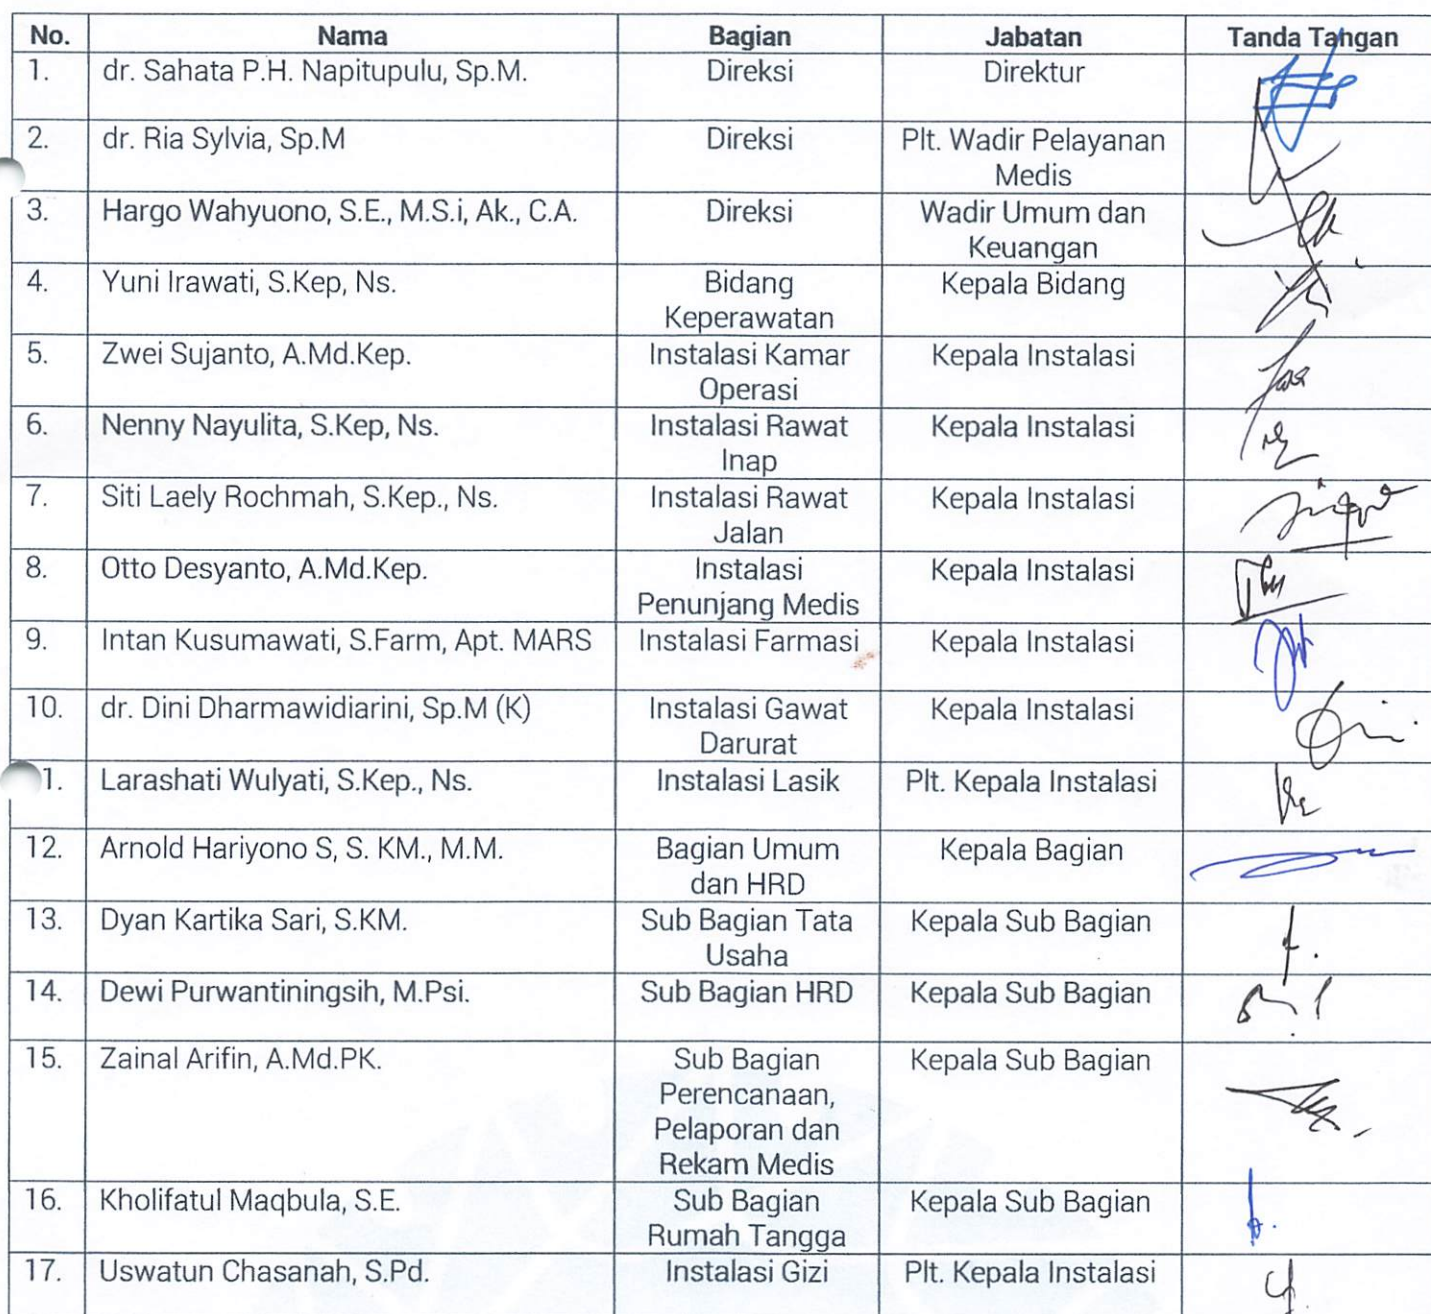 No. Nama Bagian Jabatan Tanda Tangan
1. dr. Sahata P.H. Napitupulu, Sp.M. Direksi Direktur
2. dr. Ria Sylvia, Sp.M Direksi Plt. Wadir Pelayanan
Medis
3. Hargo Wahyuono, S.E., M.S.i, Ak., C.A. Direksi Wadir Umum dan
Keuangan
4. Yuni Irawati, S.Kep, Ns. Bidang Kepala Bidang
Keperawatan
5. Zwei Sujanto, A.Md.Kep. Instalasi Kamar Kepala Instalasi
Operasi
6. Nenny Nayulita, S.Kep, Ns. Instalasi Rawat Kepala Instalasi
Inap
7. Siti Laely Rochmah, S.Kep., Ns. Instalasi Rawat Kepala Instalasi
Jalan
8. Otto Desyanto, A.Md.Kep. Instalasi Kepala Instalasi
Penunjang Medis
9. Intan Kusumawati, S.Farm, Apt. MARS Instalasi Farmasi Kepala Instalasi
10. dr. Dini Dharmawidiarini, Sp.M (K) Instalasi Gawat Kepala Instalasi
Darurat
1. Larashati Wulyati, S.Kep., Ns. Instalasi Lasik Plt. Kepala Instalasi
12. Arnold Hariyono S, S. KM., M.M. Bagian Umum Kepala Bagian
dan HRD
13. Dyan Kartika Sari, S.KM. Sub Bagian Tata Kepala Sub Bagian
Usaha
14. Dewi Purwantiningsih, M.Psi. Sub Bagian HRD Kepala Sub Bagian
15. Zainal Arifin, A.Md.PK. Sub Bagian Kepala Sub Bagian
Perencanaan,
Pelaporan dan
Rekam Medis
16. Kholifatul Maqbula, S.E. Sub Bagian Kepala Sub Bagian
Rumah Tangga
17. Uswatun Chasanah, S.Pd. Instalasi Gizi Plt. Kepala Instalasi